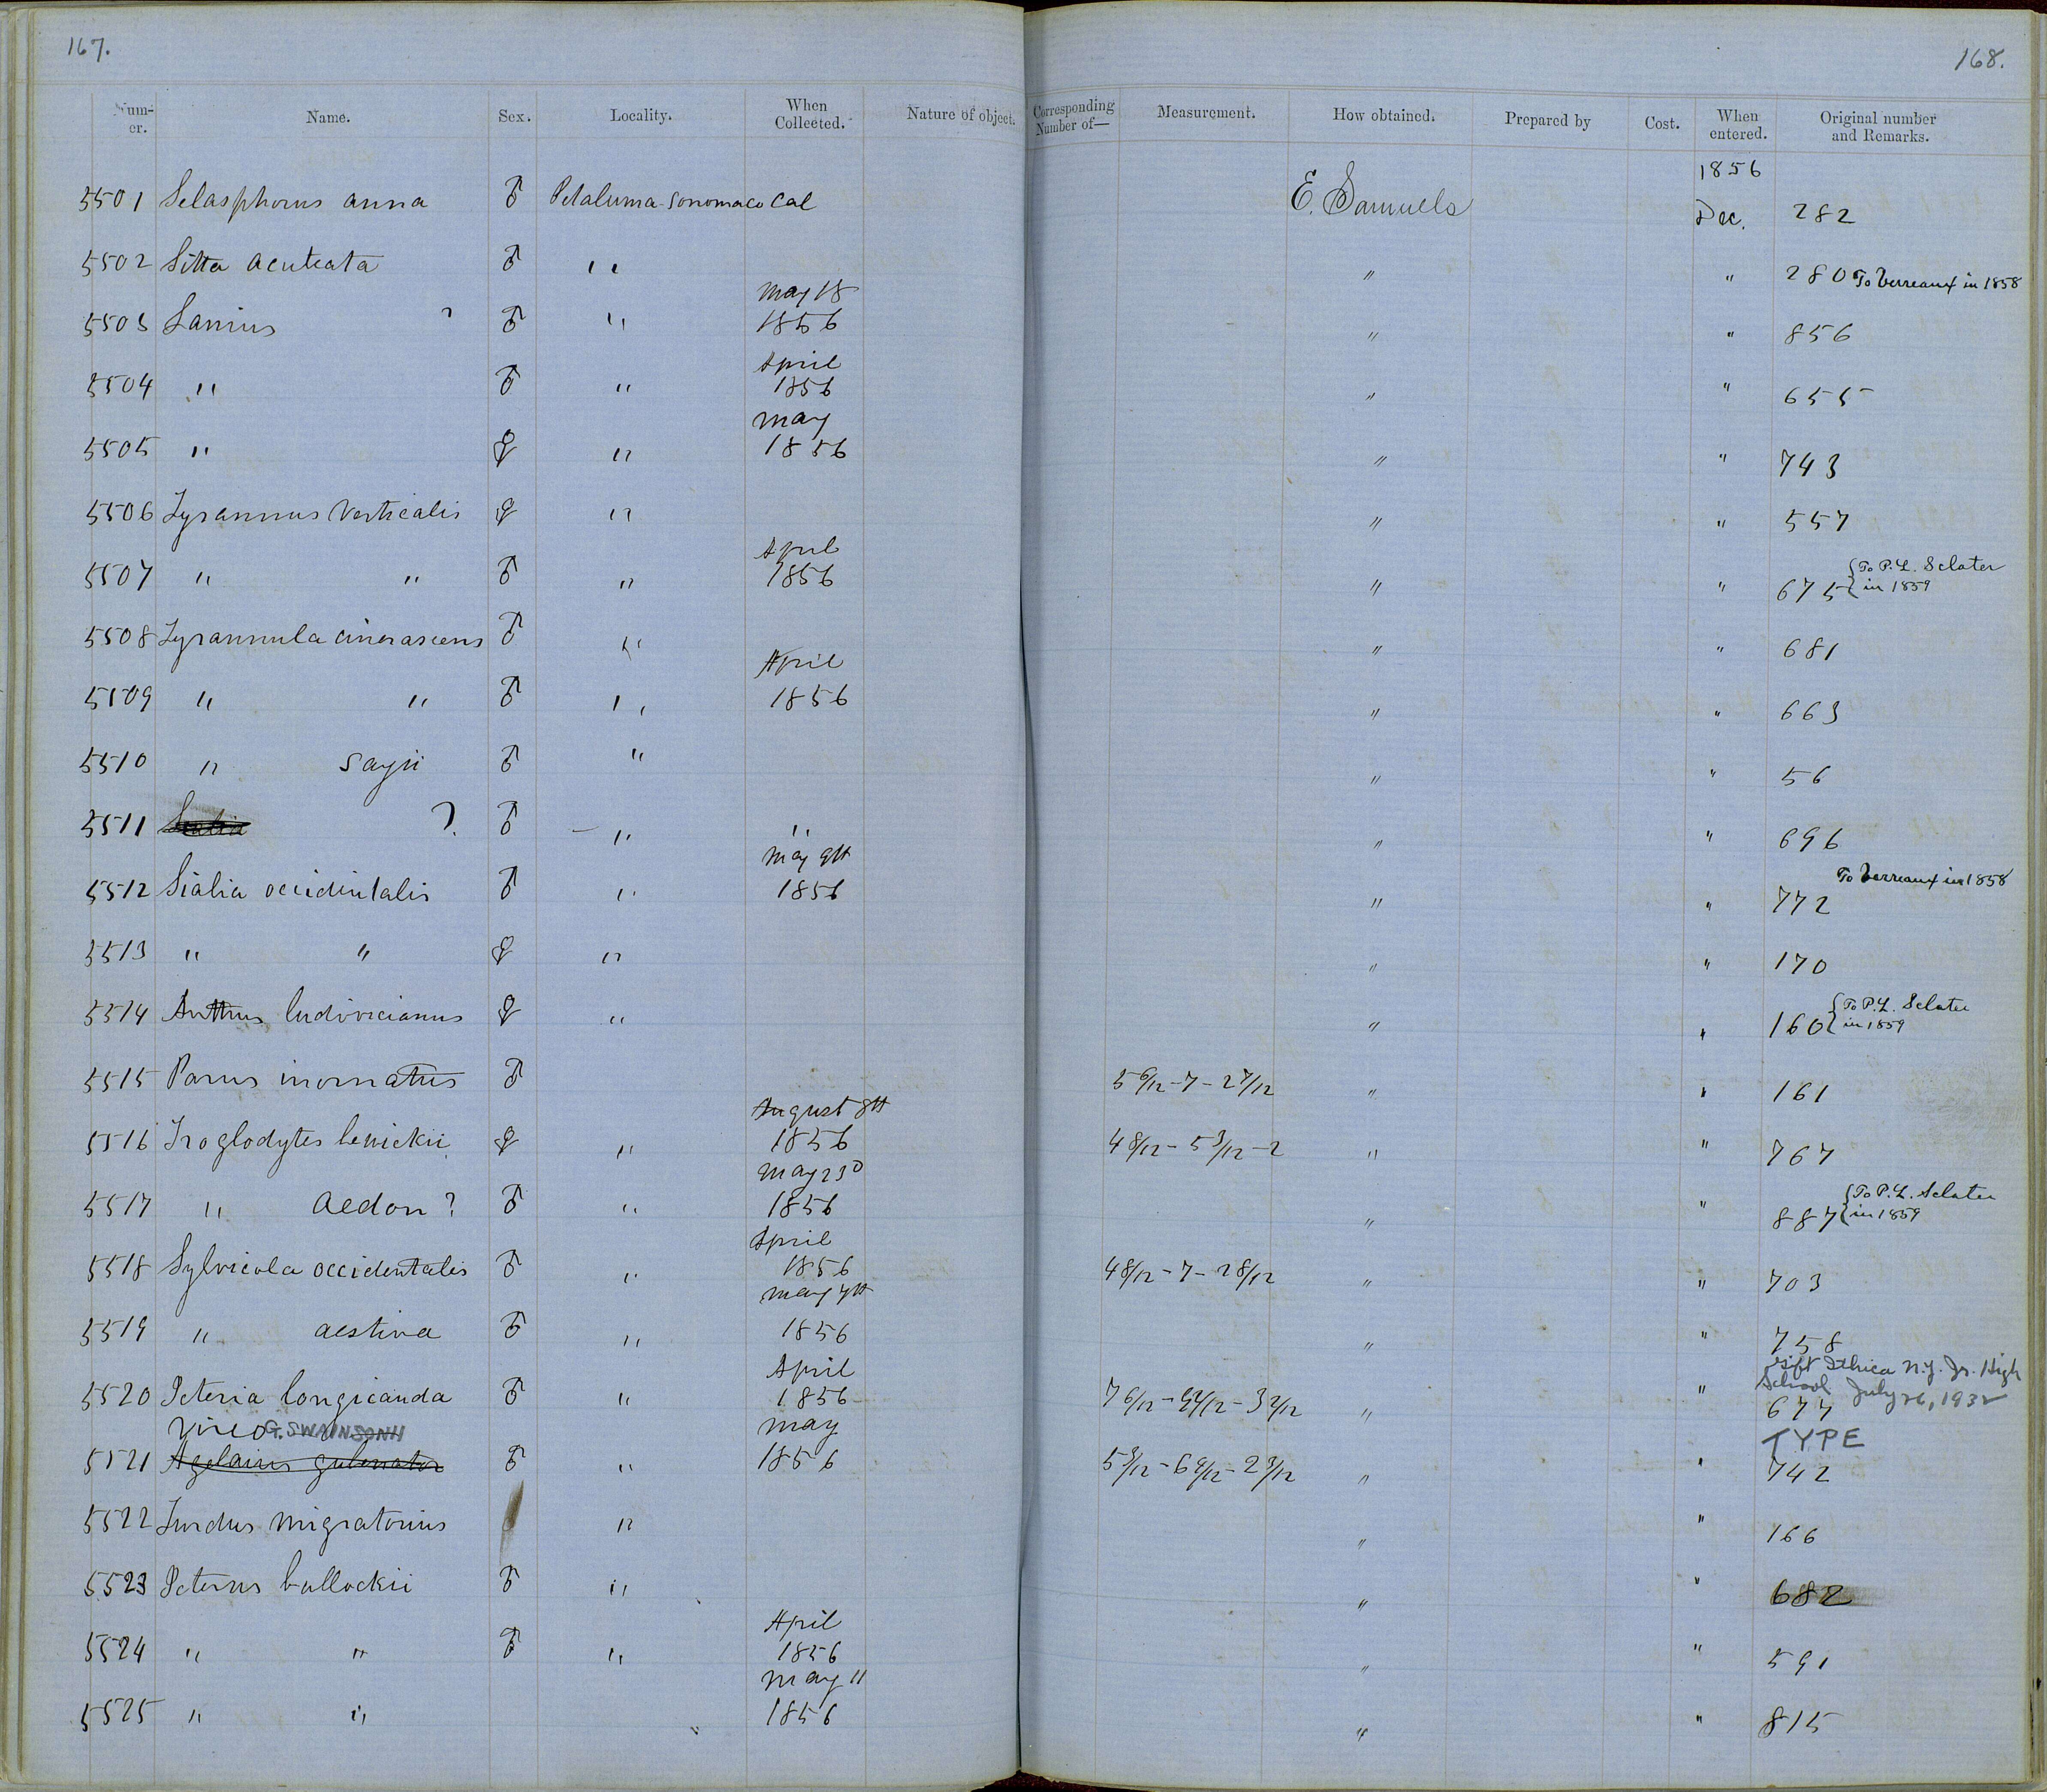 167.
168.
Num-er. Name. Sex. Locality. When Collected. Nature of object. Corresponding Number of— Measurement. How obtained. Prepared by Cost. When entered. Original number and Remarks.
1856
5501 Selasphorus anna ♂ Petaluma Sonoma co Cal E. Samuels Dec. 282
5502 Sitta aculeata ♂ " " " 280 To Verreaux in 1858
May 18
5503 Lanius ? ♂ " 1856 " " 856
April
5504 " ♂ " 1856 " " 655
May
5505 " ♀ " 1856 " " 743
5506 Tyrannus verticalis ♀ " " " 557
April {To P.L. Sclater
5507 " " ♂ " 1856 " " 675 {in 1859
5508 Tyrannula cinerascens ♂ " " " 681
April
5509 " " ♂ " 1856 " " 663
5510 " sayii ♂ " " " 56
5511 Sialia ? ♂ " " " " 696
May 9th To Verreaux in 1858
5512 Sialia occidentalis ♂ " 1856 " " 772
5513 " " ♀ " " " 170
{To P.L. Sclater
5514 Anthus ludovicianus ♀ " " " 160 {in 1859
5515 Parus inornatus ♂ 5 6/12 - 7 - 2 7/12 " " 161
August 8th
5516 Troglodytes bewickii ♀ " 1856 4 8/12 - 5 3/12 - 2 " " 767
May 23d {To P.L. Sclater
5517 " aedon ? ♂ " 1856 " " 887 {in 1859
April
5518 Sylvicola occidentalis ♂ " 1856 4 8/12 - 7 - 2 8/12 " " 703
May 7th
5519 " aestiva ♂ " 1856 " " 758
April Gift Ithica N.Y. Jr. High
School July 26, 1932
5520 Icteria longicauda ♂ " 1856 7 6/12 - 9 - 3 2/12 " " 677
Vireo G. SWAINSONII May TYPE
5521 Agelaius gubernator ♂ " 1856 5 3/12 - 6 - 2 " " 742
5522 Turdus migratorius " " " 166
5523 Icterus bullockii ♂ " " " 682
April
5524 " " ♂ " 1856 " " 591
May 11
5525 " " 1856 " " 815